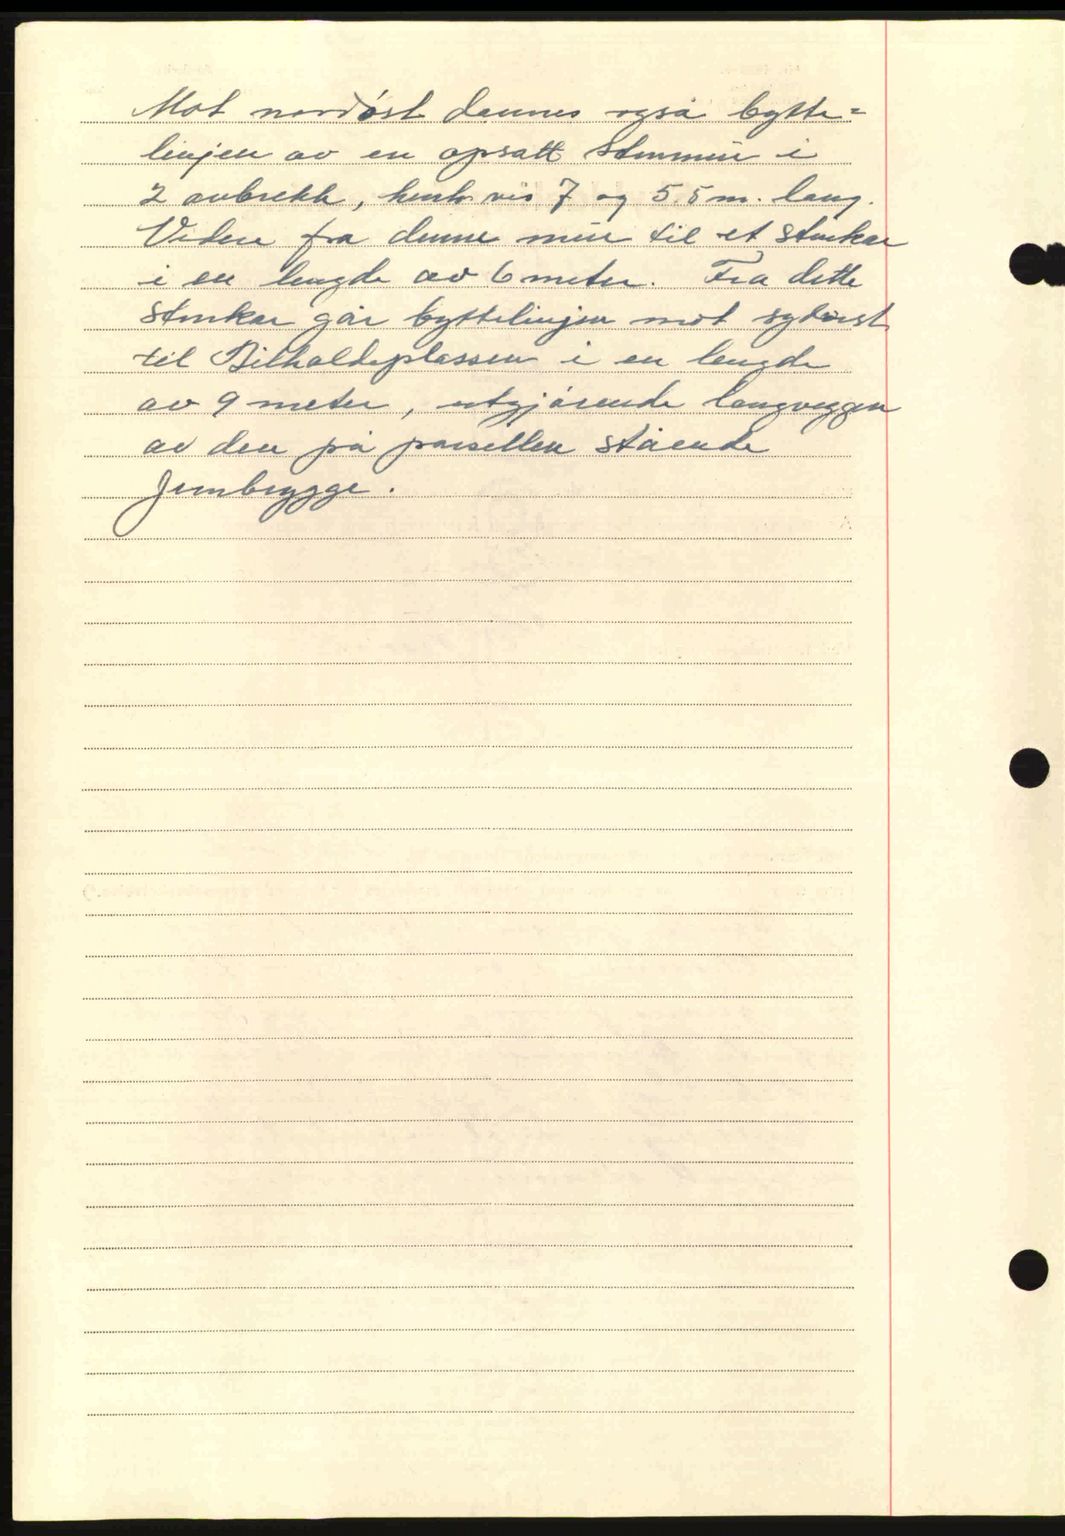 Mot nordøst dannes også bytte=
linjen av en opsatt stenmur i
2 avbrekk, henh.vis 7 og 5.5 m. lang.
Videre fra denne mur til et stenkar
i en lengde av 6 meter. Fra dette
stenkar går byttelinjen mot sydøst
til Bilholdeplassen i en lengde
av 9 meter, utgjørende langveggen
av den på parsellen stående
Jernbrygge.